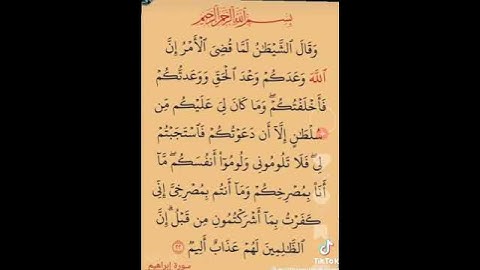 بِسْمِ اللَّهِ الرَّحْمَٰنِ الرَّحِيمِ
وَقَالَ ٱلشَّيْطَٰنُ لَمَّا قُضِىَ ٱلْأَمْرُ إِنَّ
ٱللَّهَ وَعَدَكُمْ وَعْدَ ٱلْحَقِّ وَوَعَدتُّكُمْ
فَأَخْلَفْتُكُمْ ۖ وَمَا كَانَ لِىَ عَلَيْكُم مِّن
سُلْطَٰنٍ إِلَّآ أَن دَعَوْتُكُمْ فَٱسْتَجَبْتُمْ
لِى ۖ فَلَا تَلُومُونِى وَلُومُوٓا۟ أَنفُسَكُم ۖ مَّآ
أَنَا۠ بِمُصْرِخِكُمْ وَمَآ أَنتُم بِمُصْرِخِىَّ ۖ إِنِّى
كَفَرْتُ بِمَآ أَشْرَكْتُمُونِ مِن قَبْلُ ۗ إِنَّ
ٱلظَّٰلِمِينَ لَهُمْ عَذَابٌ أَلِيمٌ ٢٢
سورة إبراهيم
TikTok